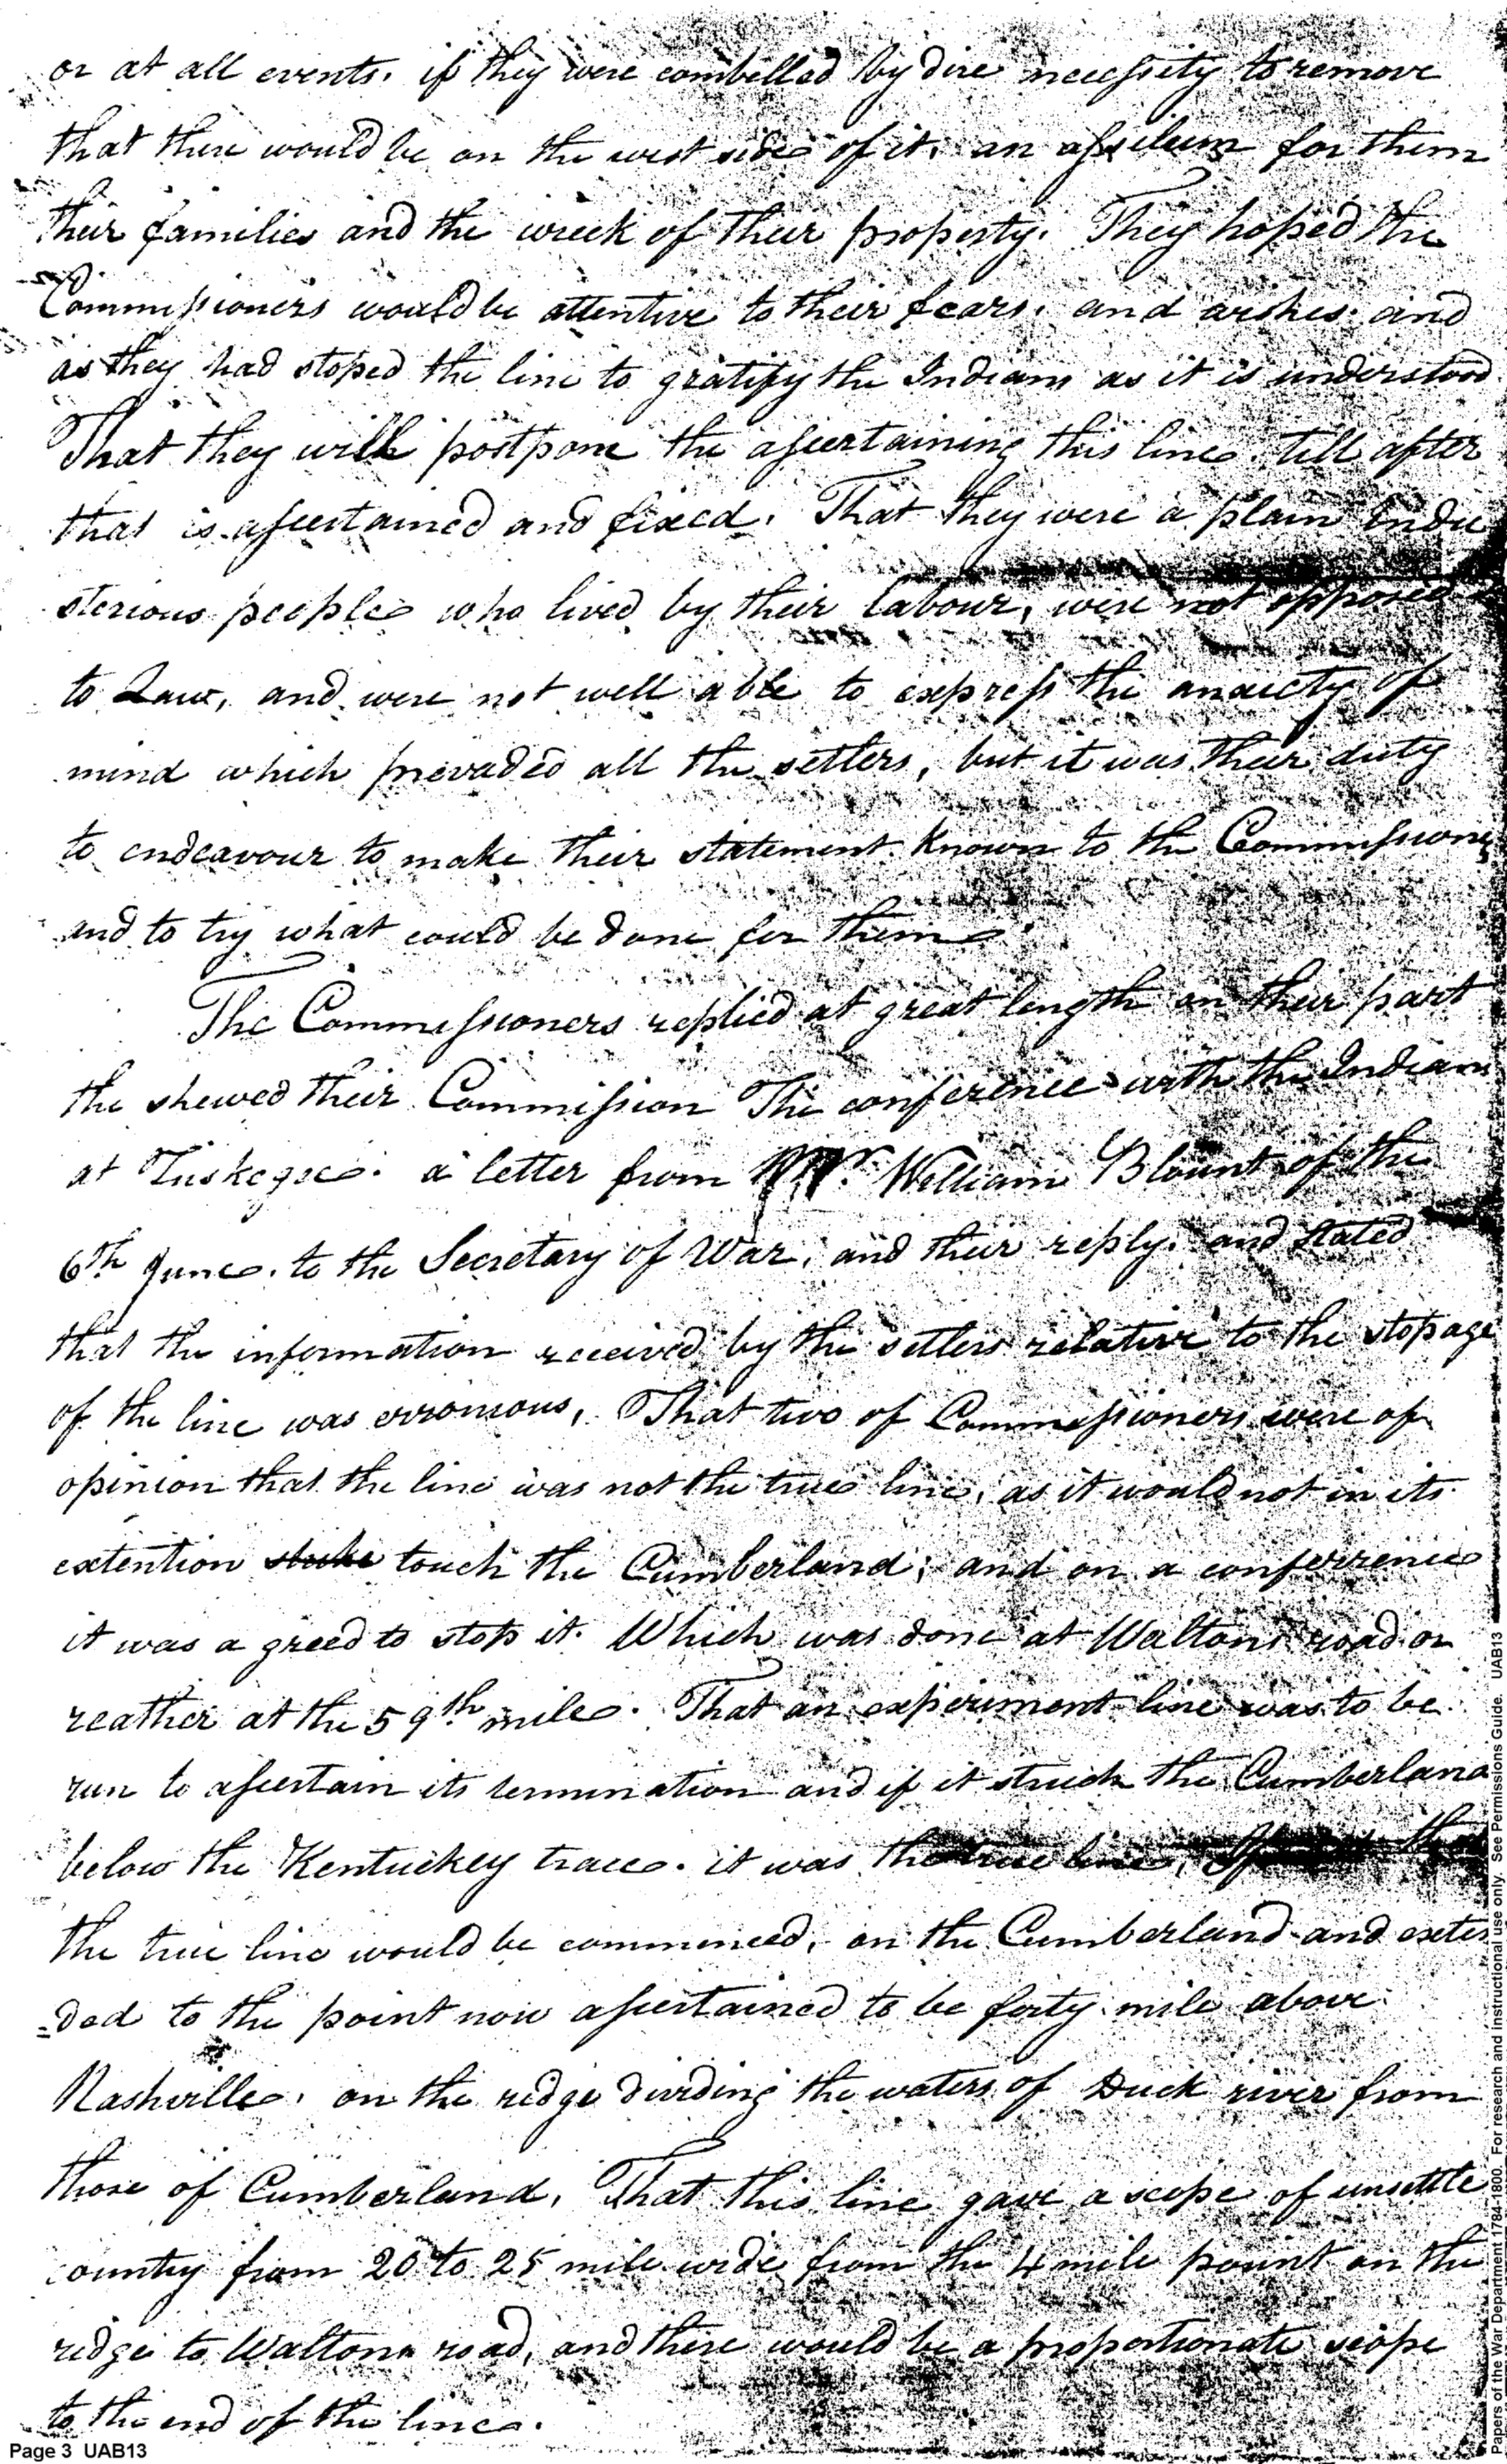 or at all events. if they were combelled by dire necessity to remove
that there would be on the west side of it. an assilum for them
their families and the wreck of their property. They hoped the
Commissioners would be attentive to their fears. and wishes. and
as they had stoped the line to gratify the Indians as it is understood
That they will postpone the assertaining this line till after
that is assertained and fixed. That they were a plain Indu
sterious people who lived by their labour, were not opposed
to Law, and were not well able to express the anxiety of
mind which prevaded all the settlers, but it was their duty
to endeavour to make their statement known to the Commissioners
and to try what could be done for them
The Commissioners replied at great length on their part
the shewed their Commission The conference with the Indians
at Tuskegee. a letter from Mr. William Blount of the
6th June. to the Secretary of War, and their reply. and stated
that the information received by the settlers relative to the stopage
of the line was erronious, That two of Commissioners were of
opinion that the line was not the true line, as it would not in its
extention touch the Cumberland; and on a conferrence
it was a greed to stop it. Which was done at Waltons road or
reather at the 59th mile. That an experiment line was to be
run to assertain its termination and if it struck the Cumberland
below the Kentuckey trace. it was the true line, If
the true line would be commenced, on the Cumberland and exten
=ded to the point now assertained to be forty mile above
Nashville. on the ridge dividing the waters of Duck river from
those of Cumberland. That this line gave a scope of unsettle
country from 20 to 25 mile wide from the 4 mile point on the
ridge to Waltons road, and there would be a proportionate scope
to the end of the line.
Page 3 UAB13
Papers of the War Department 1784-1800. For research and instructional use only. See Permissions Guide. UAB13